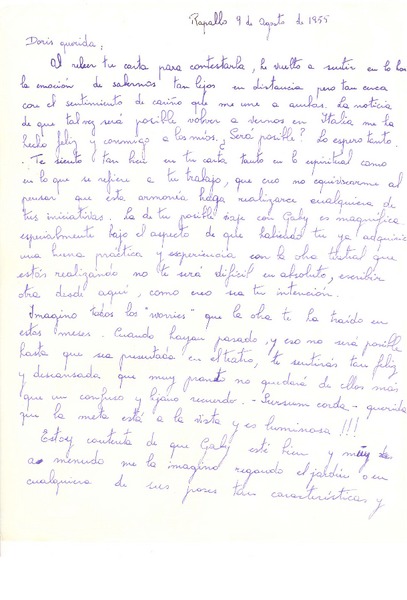 Rapallo 9 de Agosto de 1955
Doris querida;
Al releer tu carta para contestarla, he vuelto a sentir en lo hon
la emoción de sabernos tan lejos en distancia pero tan cerca
con el sentimiento de cariño que me une a ambas. La noticia
de que tal vez será posible volver a vernos en Italia me ha
hecho feliz y conmigo a los míos. ¿Será posible? Lo espero tanto.
. Te siento tan bien en tu carta tanto en lo espiritual como
en lo que se refiere a tu trabajo, que creo no equivocarme al
pensar que esta armonía haga realizarse cualquiera de
tus iniciativas. La de tu posible viaje con Gaby es magnífica
especialmente bajo el aspecto de que habiendo tu ya adquirido
una buena práctica y experiencia con la obra teatral que
estás realizando no te será difícil en absoluto, escribir
otra desde aquí, como creo sea tu intención.
Imagino todos los "worries" que la obra te ha traído en
estos meses. Cuando hayan pasado, y eso no será posible
hasta que sea presentada en el teatro, te sentirás tan feliz
y descansada que muy pronto no quedará de ellos más
que un confuso y lejano recuerdo. - Sursum corda - querida
que la meta está a la vista y es luminosa !!!
Estoy contenta de que Gaby esté bien y muy
a menudo me la imagino regando el jardín o en
cualquiera de sus poses tan características y